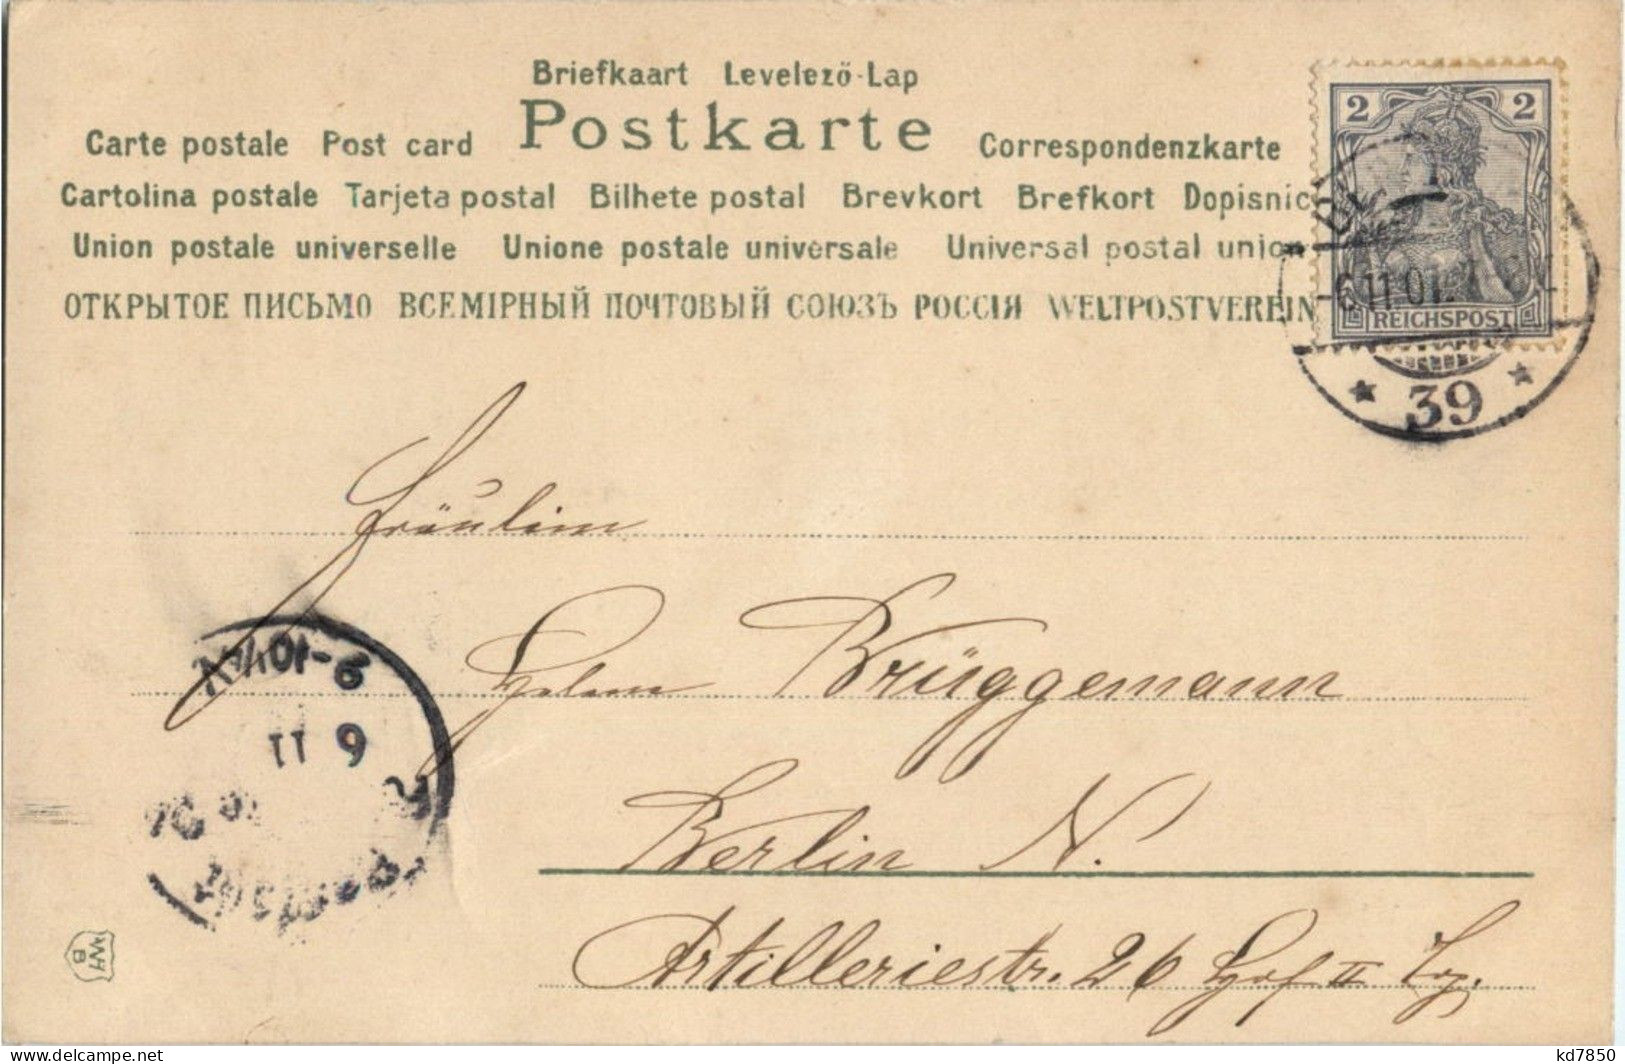 Briefkaart Levelező-Lap
Postkarte
Carte postale Post card Correspondenzkarte
Cartolina postale Tarjeta postal Bilhete postal Brevkort Brefkort Dopisnic
Union postale universelle Unione postale universale Universal postal union
ОТКРЫТОЕ ПИСЬМО ВСЕМІРНЫЙ ПОЧТОВЫЙ СОЮЗЪ РОССІЯ WELTPOSTVEREIN
2 2
REICHSPOST
-6.11.01.
* 39 *
Fräulein
Brüggemann
Berlin N.
Artilleriestr. 26 Hof II
9-10V
6 11
WH
B
delcampe.net
kd7850